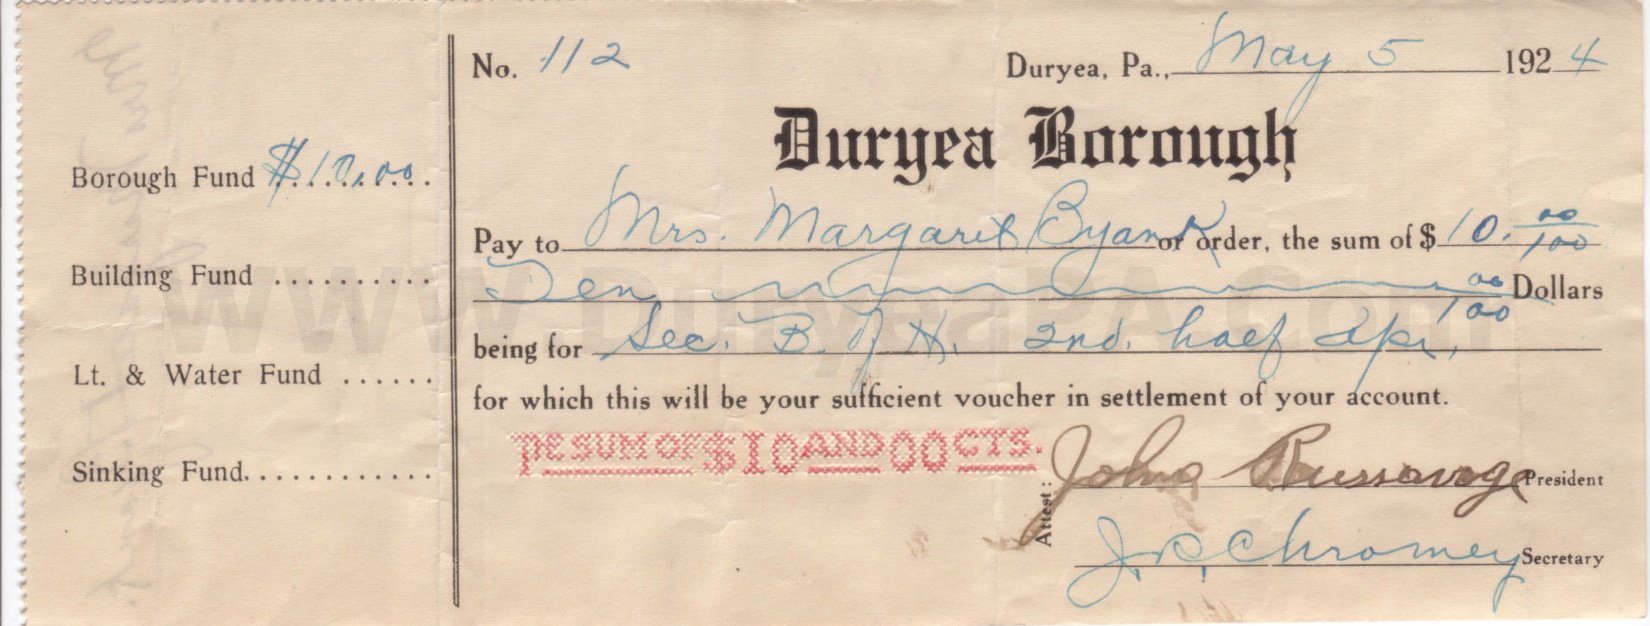 No. 112 Duryea, Pa., May 5 1924
Duryea Borough
Borough Fund $10.00
Pay to Mrs. Margaret Byank or order, the sum of $ 10. 00/100
Building Fund ..........
Ten 00/100 Dollars
being for Sec. B. of H. 2nd. half Apr.
Lt. & Water Fund ......
for which this will be your sufficient voucher in settlement of your account.
THE SUM OF $10 AND 00 CTS.
Sinking Fund............
Attest: John Russavage President
J. P. Chromey Secretary
www.DuryeaPA.Com